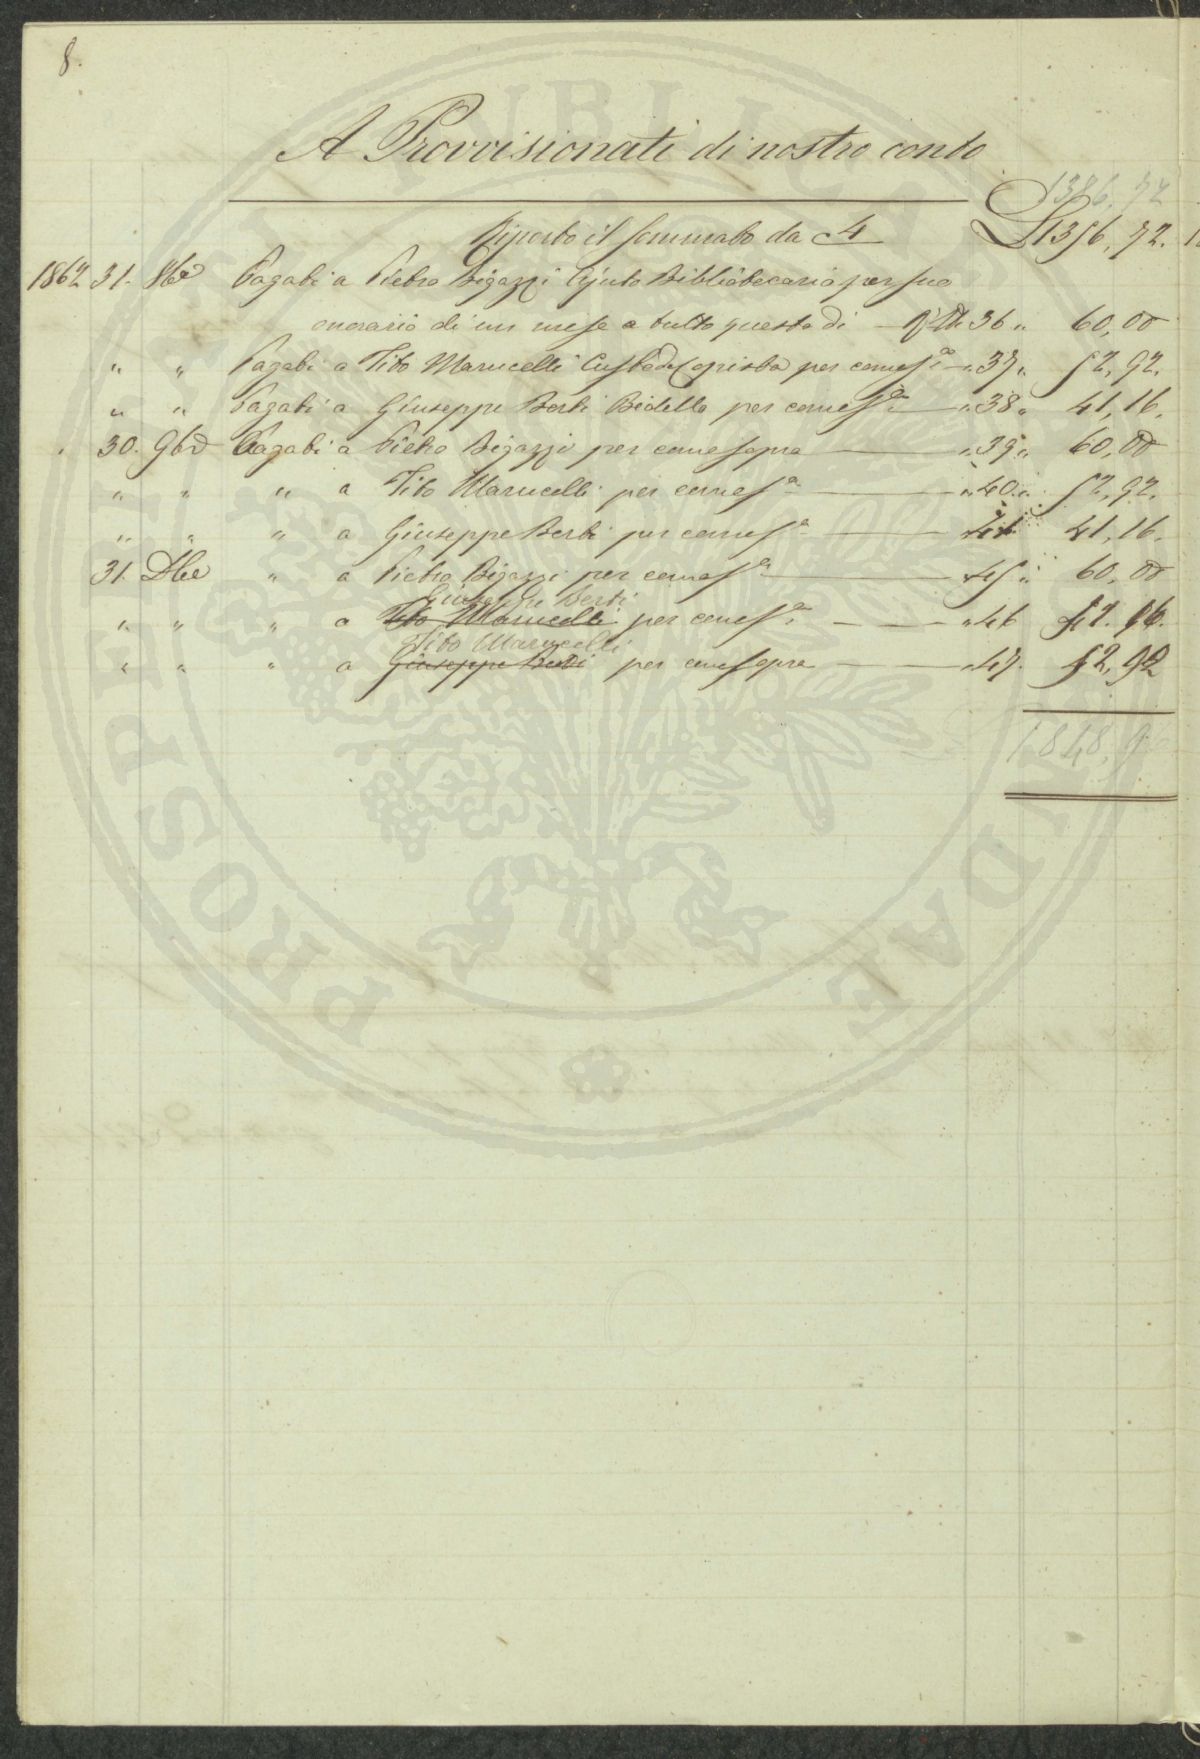 8.
A Provvisionati di nostro conto
1386,72
Riporto il sommato da 4 L 1386,72.
1862 31. 8be Pagati a Pietro Bigazzi Ajuto Bibliotecario per suo
onorario di un mese a tutto questo dì — 36 „ 60,00
„ „ Pagati a Tito Marucelli Custode Copista per comes.a — „ 37 „ 52,92.
„ „ Pagati a Giuseppe Berti Bidello per comes.a — „ 38 „ 41,16.
30. 9bre Pagati a Pietro Bigazzi per come sopra — „ 39 „ 60,00
„ „ „ a Tito Marucelli per comes.a — „ 40 „ 52,92.
„ „ „ a Giuseppe Berti per comes.a — 41 41,16.
31. Dbre „ a Pietro Bigazzi per comes.a — 45 „ 60,00
Giuseppe Berti
„ „ „ a Tito Marucelli per comes.a — „ 46 41.16.
Tito Marucelli
„ „ „ a Giuseppe Berti per come sopra — „ 47. 52,92
1848,96
PUBLICAE
PROSPERITATI
MDAE